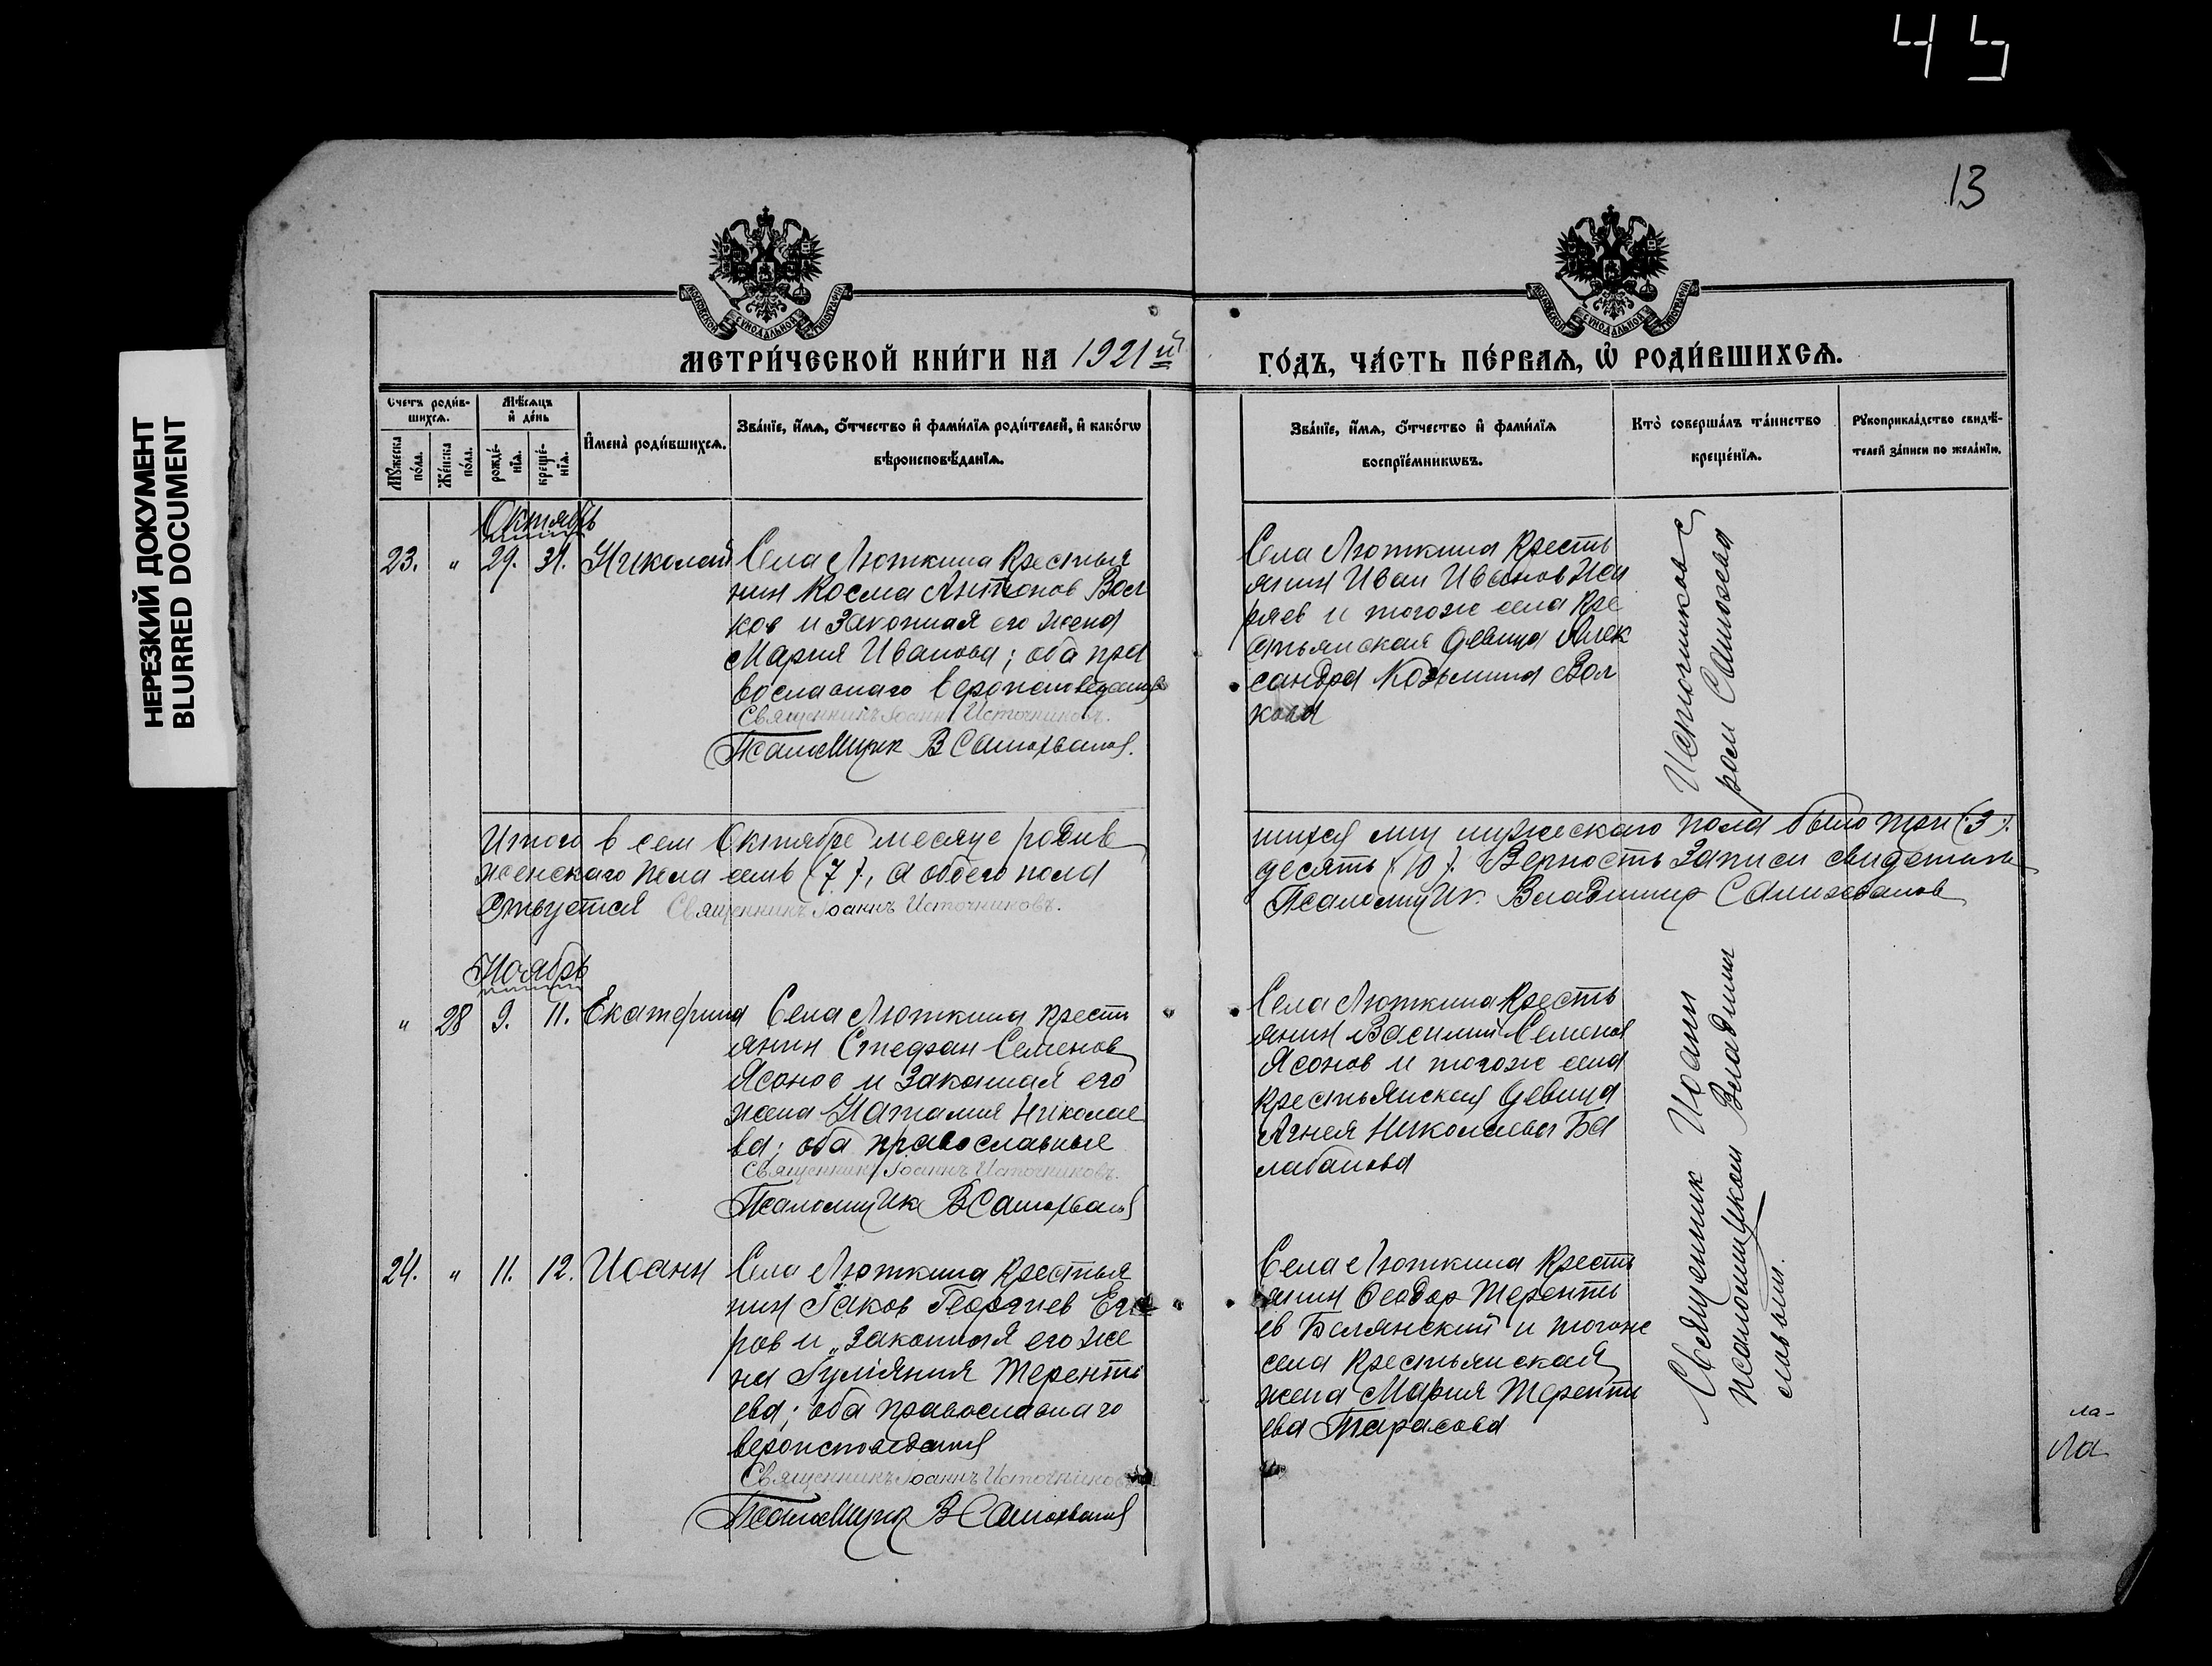 45
13
НЕРЕЗКИЙ ДОКУМЕНТ
BLURRED DOCUMENT
МЕТРИ́ЧЕСКОЙ КНИ́ГИ НА 1921й
ГО́ДЪ, ЧА́СТЬ ПЕ́РВАѦ, Ѡ҆ РОДИ́ВШИХСѦ.
Счетъ роди́в-
шихсѧ.
Мꙋжеска по́ла.
Же́нска по́ла.
Мѣ́сѧцъ и҆ де́нь
рожде́-нїѧ.
креще́-нїѧ.
И҆мена̀ роди́вшихсѧ.
Зва́нїе, и҆́мѧ, ѻ҆́тчество и҆ фами́лїѧ роди́телей, и҆ како́гѡ
вѣроисповѣ́данїѧ.
Зва́нїе, и҆́мѧ, ѻ҆́тчество и҆ фами́лїѧ
воспрїе́мникѡвъ.
Кто̀ соверша́лъ та́инство
креще́нїѧ.
Рꙋкоприкла́дство свидѣ́-
телей за́писи по жела́нїю.
Октябрь
23. " 29. 31. Николай
Села Люткина крестья
нин Косма Антонов Вол
ков и законная его жена
Мария Иванова; оба пра
вославнаго вероисповедания
Священникъ Іоаннъ Источниковъ.
Псаломщик В Самохвалов.
Села Люткина кресть
янин Иван Иванов
и тогоже села кре
стьянская девица Алек
сандра Козьмина Вол
кова
Итого в сем Октябре месяце родив
шихся мужескаго пола было три (3).
женскаго пола семь (7), а обоего пола
десять (10). Верность записи свидетель
ствуется Священникъ Іоаннъ Источниковъ.
Псаломщик Владимир Самохвалов
Ноябрь
" 28 9. 11. Екатерина
Села Люткина крест
янин Стефан Семенов
Ясонов и законная его
жена Наталия Николае
ва; оба православные
Священникъ Іоаннъ Источниковъ.
Псаломщик В Самохвалов
Села Люткина кресть
янин Василий Семенов
Ясонов и тогоже села
крестьянская девица
Агнея Николаева Ба
лабанова
24. " 11. 12. Иоанн
Села Люткина крестья
нин Іаков Георгиев Его
ров и законная его же
на Іулияния Теренть
ева; оба православнаго
вероисповедания
Священникъ Іоаннъ Источниковъ
Псаломщик В Самохвалов
Села Люткина кресть
янин Феодор Теренть
ев Белянский и тогоже
села крестьянская
жена Мария Теренть
ева Тарасова
Священник Иоанн Источников с
псаломщиком Владимиром Самохваловым.
ла-
ла